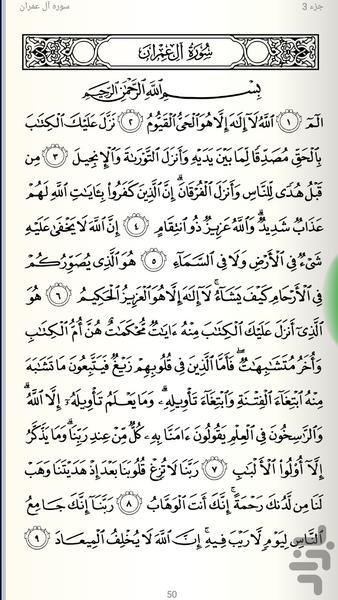 جزء 3
سوره آل عمران
سُورَةُ آلِ عِمۡرَانَ
بِسۡمِ ٱللَّهِ ٱلرَّحۡمَٰنِ ٱلرَّحِيمِ
الٓمٓ ١ ٱللَّهُ لَآ إِلَٰهَ إِلَّا هُوَ ٱلۡحَيُّ ٱلۡقَيُّومُ ٢ نَزَّلَ عَلَيۡكَ ٱلۡكِتَٰبَ
بِٱلۡحَقِّ مُصَدِّقٗا لِّمَا بَيۡنَ يَدَيۡهِ وَأَنزَلَ ٱلتَّوۡرَىٰةَ وَٱلۡإِنجِيلَ ٣ مِن
قَبۡلُ هُدٗى لِّلنَّاسِ وَأَنزَلَ ٱلۡفُرۡقَانَۗ إِنَّ ٱلَّذِينَ كَفَرُواْ بِـَٔايَٰتِ ٱللَّهِ لَهُمۡ
عَذَابٞ شَدِيدٞۗ وَٱللَّهُ عَزِيزٞ ذُو ٱنتِقَامٍ ٤ إِنَّ ٱللَّهَ لَا يَخۡفَىٰ عَلَيۡهِ
شَيۡءٞ فِي ٱلۡأَرۡضِ وَلَا فِي ٱلسَّمَآءِ ٥ هُوَ ٱلَّذِي يُصَوِّرُكُمۡ
فِي ٱلۡأَرۡحَامِ كَيۡفَ يَشَآءُۚ لَآ إِلَٰهَ إِلَّا هُوَ ٱلۡعَزِيزُ ٱلۡحَكِيمُ ٦ هُوَ
ٱلَّذِيٓ أَنزَلَ عَلَيۡكَ ٱلۡكِتَٰبَ مِنۡهُ ءَايَٰتٞ مُّحۡكَمَٰتٌ هُنَّ أُمُّ ٱلۡكِتَٰبِ
وَأُخَرُ مُتَشَٰبِهَٰتٞۖ فَأَمَّا ٱلَّذِينَ فِي قُلُوبِهِمۡ زَيۡغٞ فَيَتَّبِعُونَ مَا تَشَٰبَهَ
مِنۡهُ ٱبۡتِغَآءَ ٱلۡفِتۡنَةِ وَٱبۡتِغَآءَ تَأۡوِيلِهِۦۖ وَمَا يَعۡلَمُ تَأۡوِيلَهُۥٓ إِلَّا ٱللَّهُۗ
وَٱلرَّٰسِخُونَ فِي ٱلۡعِلۡمِ يَقُولُونَ ءَامَنَّا بِهِۦ كُلّٞ مِّنۡ عِندِ رَبِّنَاۗ وَمَا يَذَّكَّرُ
إِلَّآ أُوْلُواْ ٱلۡأَلۡبَٰبِ ٧ رَبَّنَا لَا تُزِغۡ قُلُوبَنَا بَعۡدَ إِذۡ هَدَيۡتَنَا وَهَبۡ
لَنَا مِن لَّدُنكَ رَحۡمَةًۚ إِنَّكَ أَنتَ ٱلۡوَهَّابُ ٨ رَبَّنَآ إِنَّكَ جَامِعُ
ٱلنَّاسِ لِيَوۡمٖ لَّا رَيۡبَ فِيهِۚ إِنَّ ٱللَّهَ لَا يُخۡلِفُ ٱلۡمِيعَادَ ٩
50